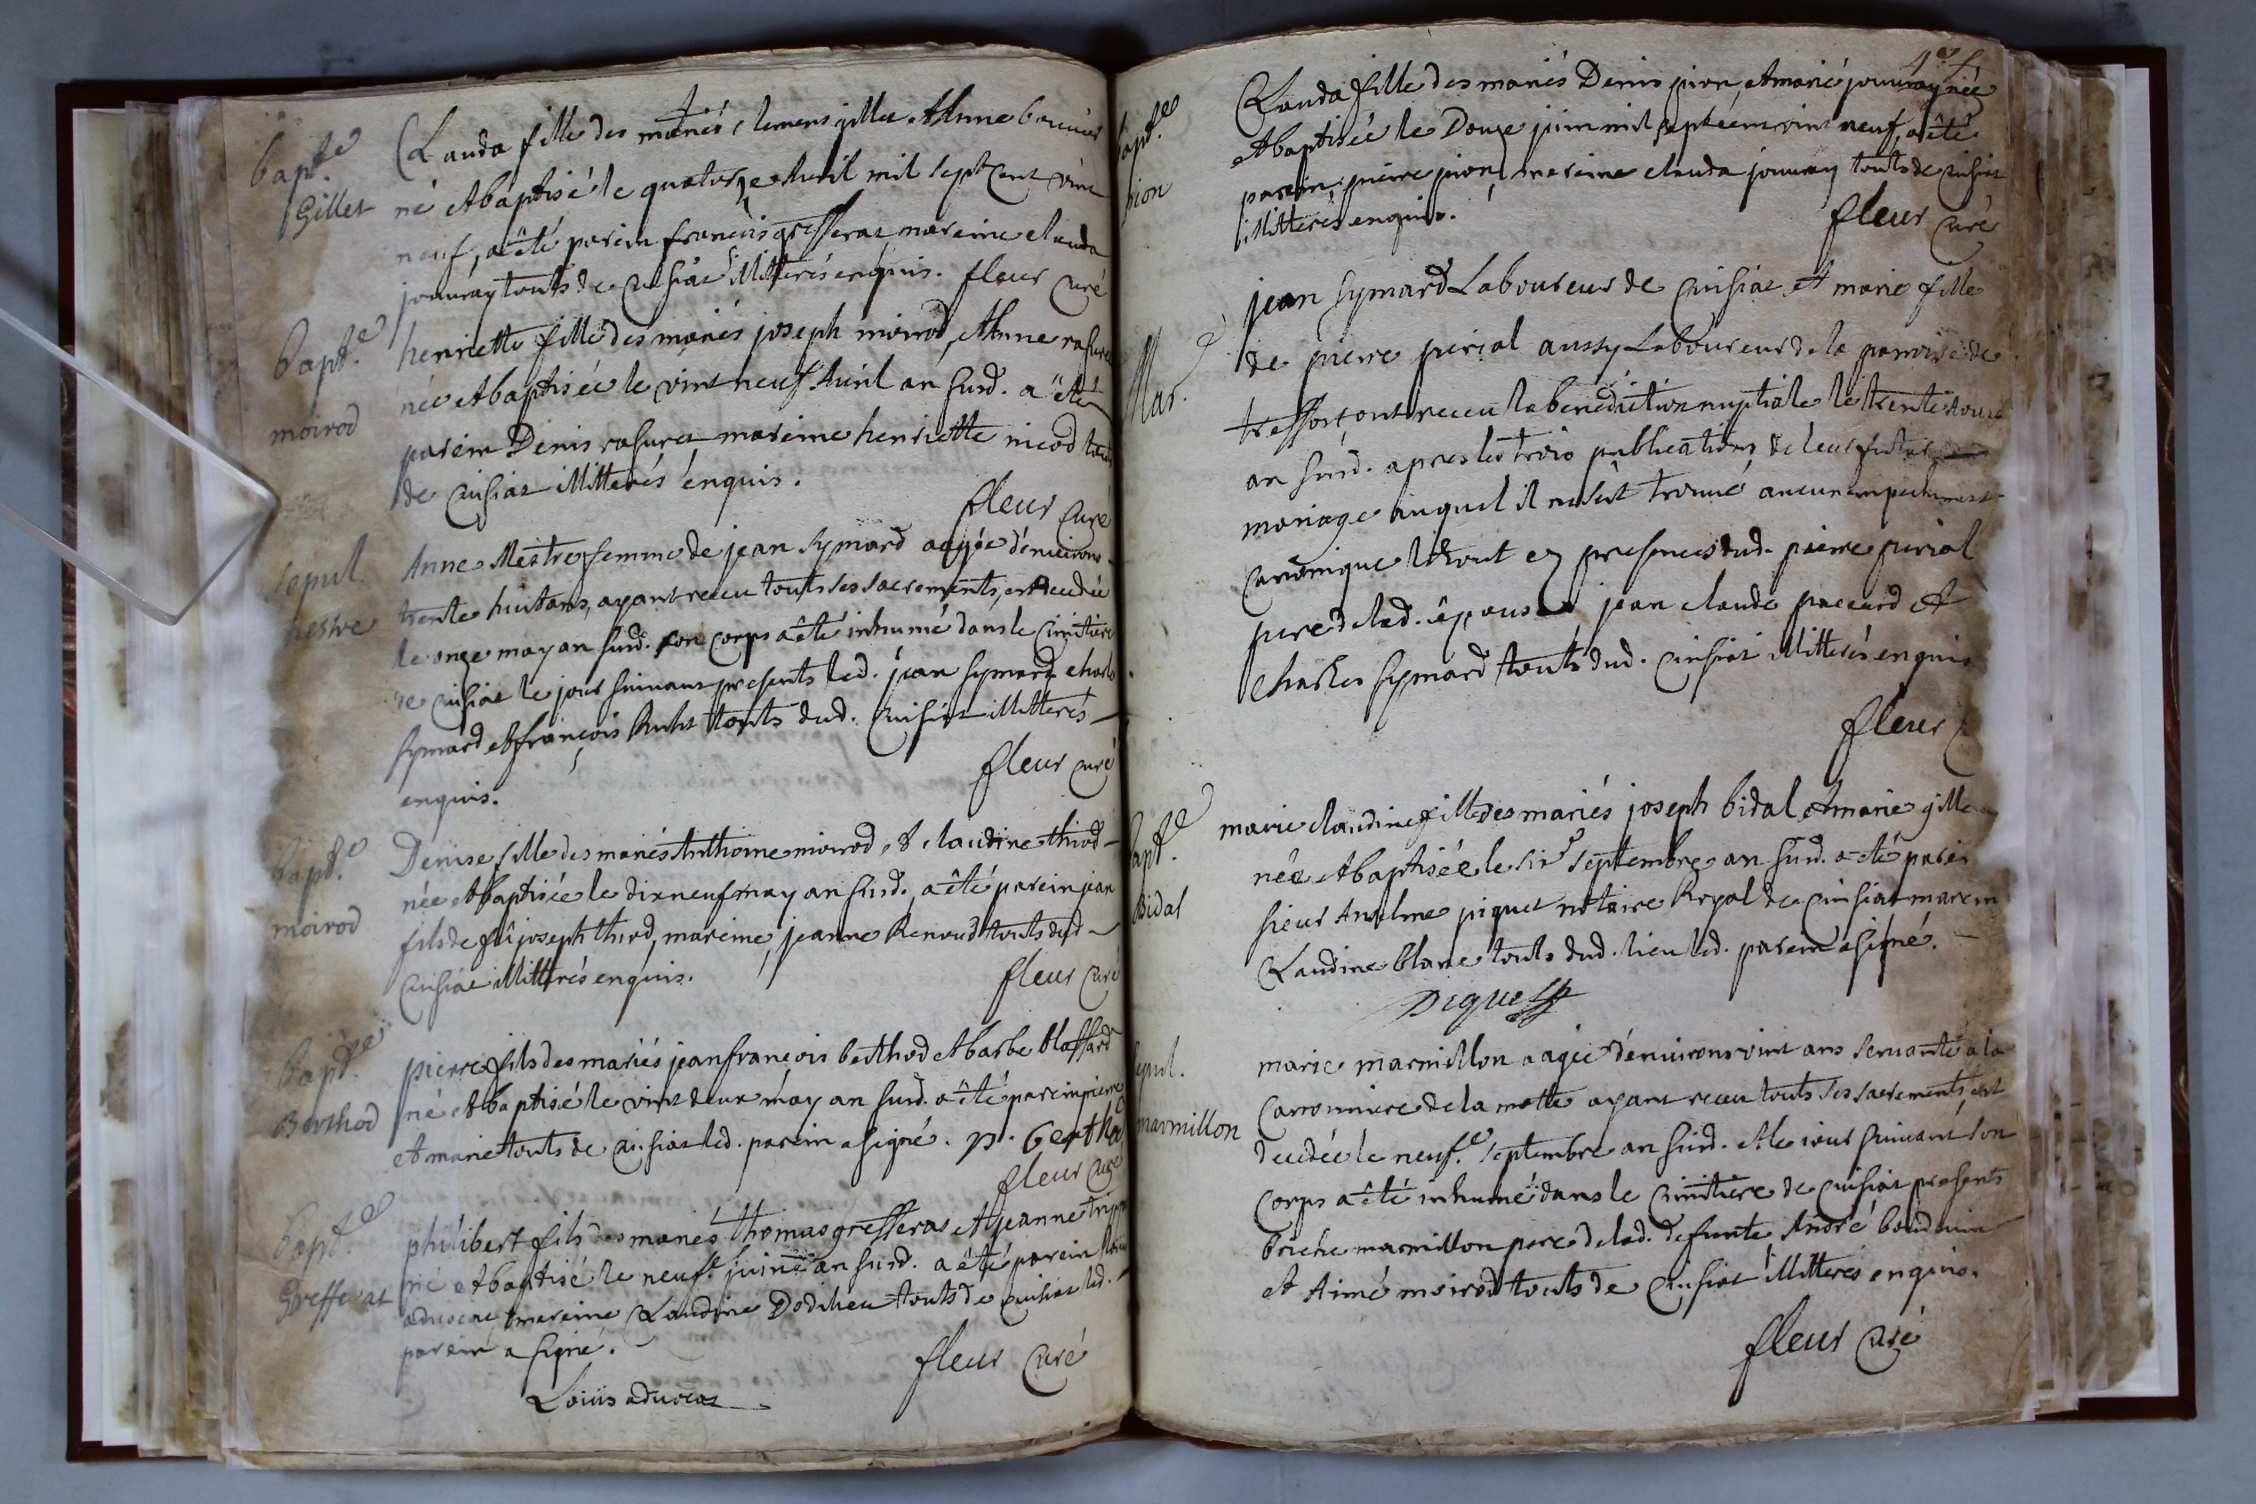 bapt.e
Gillet
Clauda fille des mariés clemens gillet et Anne bouvier
né et baptisé le quatorze Auril mil sept cent vint
neuf, a êté parein francois gresseras mareine clauda
jouuray touts de cuisiat illitterés enquis. fleur curé
bapt.e
moirod
henriette fille des mariés joseph moirod, et Anne rasurel
née et baptisée le vint neuf Auril an susd. a êté
parein Denis rasurel mareine henriette nicod touts
de cuisiat illitterés enquis.
fleur curé
sepul.
mestre
Anne Mestre femme de jean symard aagée d'enuirons
trente huit ans, ayant receu touts ses sacrements, est decedée
le onze may an susd. son corps a êté inhumé dans le cimitiere
de cuisiat le jour suiuant presents led. jean symard charles
symard et françois buht touts dud. cuisiat illitterés
enquis.
fleur curé
bapt.e
moirod
Denise fille des mariés Anthoine moirod, & claudine thiod
née et baptisée le dixneuf may an susd., a êté parein jean
fils de fû joseph thiod, mareine, jeanne Renoud touts dud
cuisiat illitterés enquis.
fleur curé
bapt.e
Berthod
pierre fils des mariés jean françois berthod et barbe blassard
né et baptisé le vint deux may an susd. a êté parein pierre
et marie touts de cuisiat led. parein a signé. p. bertho
fleur curé
bapt.e
Gresserat
philibert fils des mariés thomas gresseras et jeanne
né et baptisé le neuf.e juin an susd. a êté parein louis
aduocat, mareine Claudine Dodieu touts de cuisiat led.
parein a signé.
fleur curé
Loüis aduocat
bapt.e
pion
Clauda fille des mariés Denis pion, et marie jouuray née
et baptisée le Douze juin mil sept cent vint neuf, a êté
parein, pierre pion, mareine clauda jouuray touts de cuisiat
illitterés enquis.
fleur curé
Mar.e
jean symard Laboureur de cuisiat, et marie fille
de pierre perial aussy Laboureur de la paroisse de
tressort ont receu la benediction nuptiale le trente
an susd. apres les trois publications de leur futur
mariage auquel il ne s'est trouué aucun empechement
canonique le tout en presences dud. pierre perial
pere de lad. épouse, jean claude paccard et
charles symard touts dud. cuisiat illitterés enquis
fleur c
bapt.e
Bidal
marie claudine fille des mariés joseph bidal et marie gille
née et baptisée le six.e septembre an susd. a êté parein
sieur Anselme piquet notaire Royal de cuisiat marein
Claudine blanc touts dud. lieu led. parein a signé.
piquet
sepul.
marmillon
marie marmillon aagée d'enuirons vint ans seruante a la
caronniere de la motte ayant receu touts ses sacrements, est
decedée le neuf.e septembre an susd. et le jour suiuant son
corps a êté inhumé dans le cimitiere de cuisiat presents
marmillon pere de lad. defunte André
et Aimé moirod touts de cuisiat illitterés enquis.
fleur curé